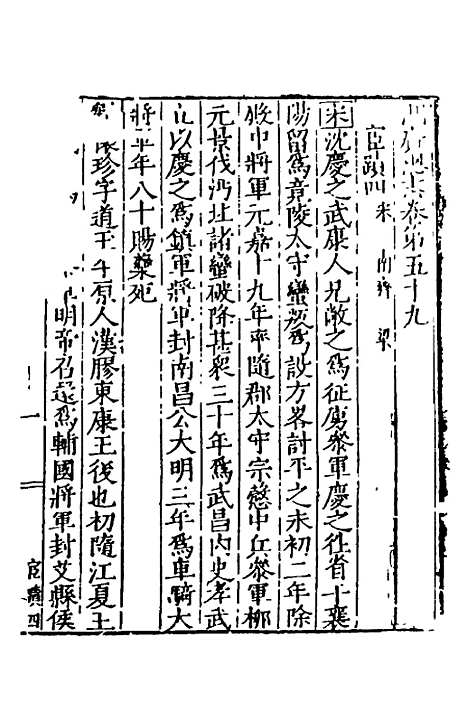 志卷第五十九
宦蹟四 宋 南齊 梁
宋沈慶之武康人兄敞之為征虜參軍慶之往省十襄
陽留為竟陵太守蠻設方畧討平之永初二年除
中將軍元嘉十九年率隨郡太守宗慤中兵參軍柳
元景伐沔北諸蠻破降甚眾三十年為武昌內史孝武
以慶之為鎮軍將軍封南昌公大明三年為車騎大
將軍年八十賜藥死
珍字道玉平原人漢膠東康王後也初隨江夏王
明帝召還為輔國將軍封艾縣侯
一
宦蹟四